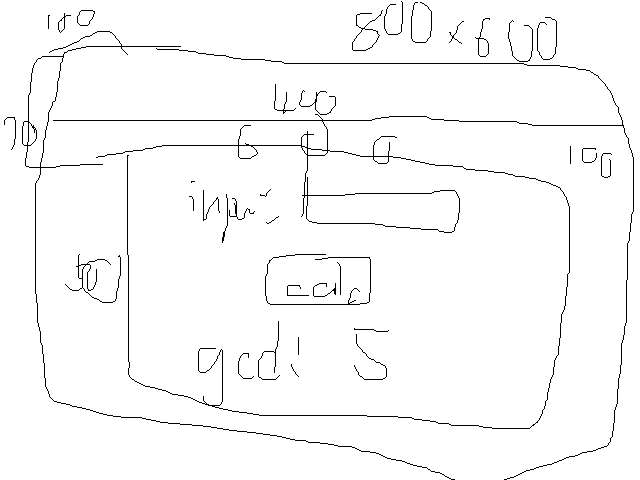 100 800 × 600
400
70 6 0 0 100
input:
50 calc
gcd: 5